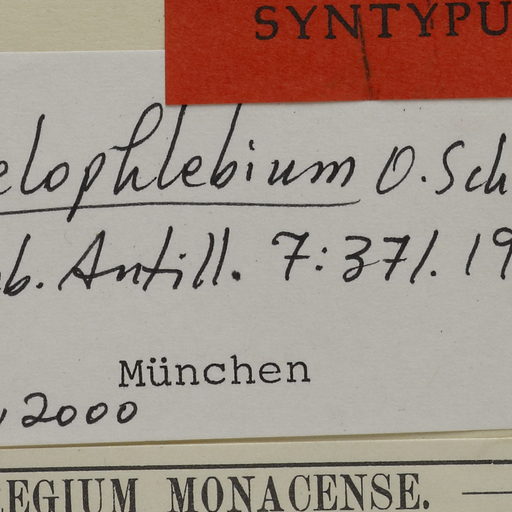 SYNTYPU
elophlebium O. Sch
b. Antill. 7:371. 19
München
2000
EGIUM MONACENSE.